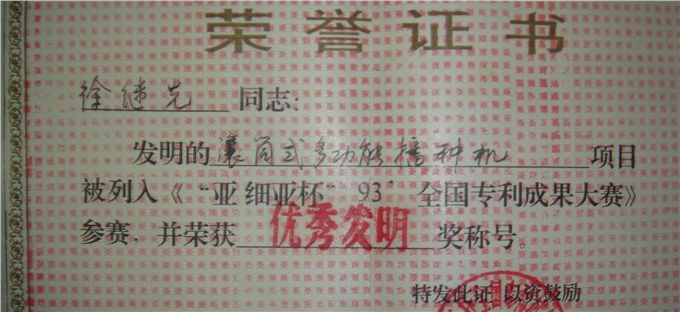 荣誉证书
徐继先 同志:
发明的 滚筒式多功能播种机 项目
被列入《“亚细亚杯”93’全国专利成果大赛》
参赛.并荣获 优秀发明 奖称号。
特发此证 以资鼓励